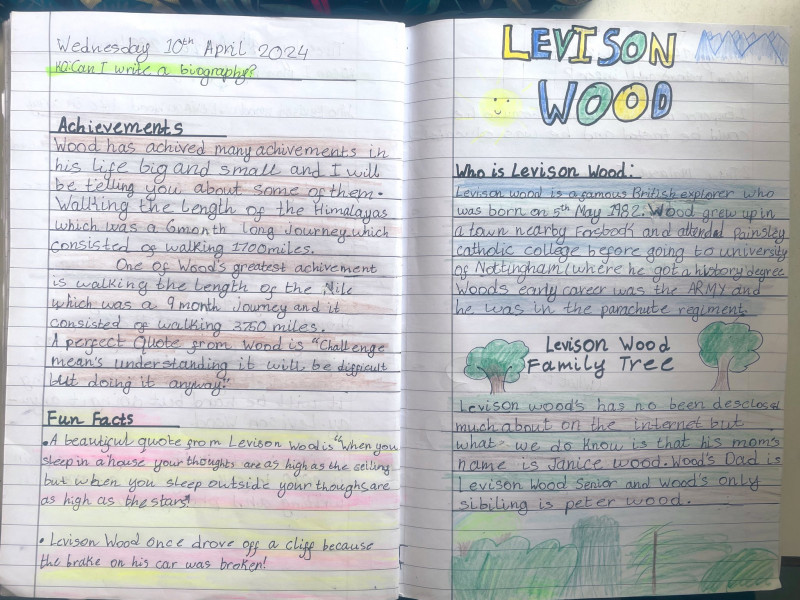 Wednesday 10th April 2024
KQ: Can I write a biography?
Achievements
Wood has achived many achivements in
his life big and small and I will
be telling you about some of them.
Walking the length of the Himalayas
which was a 6 month long Journey which
consisted of walking 1700 miles.
One of Wood's greatest achivement
is walking the length of the Nile
which was a 9 month Journey and it
consisted of walking 3750 miles.
A perfect Quote from Wood is "Challenge
mean's understanding it will be difficult
but doing it anyway."
Fun Facts
• A beautiful quote from Levison Wood is "When you
sleep in a house your thoughts are as high as the ceiling
but when you sleep outside your though are
as high as the stars!"
• Levison Wood once drove off a cliff because
the brake on his car was broken!
LEVISON
WOOD
Who is Levison Wood:
Levison wood is a famous British explorer who
was born on 5th May 1982. Wood grew up in
a town nearby and attended Painsley
catholic college before going to university
of Nottingham where he got a history degree
Woods early career was the ARMY and
he was in the parachute regiment.
Levison Wood
Family Tree
Levison wood's has no been desclosed
much about on the internet but
what we do know is that his mom's
name is Janice wood. Wood's Dad is
Levison Wood Senior and Wood's only
sibiling is peter wood.